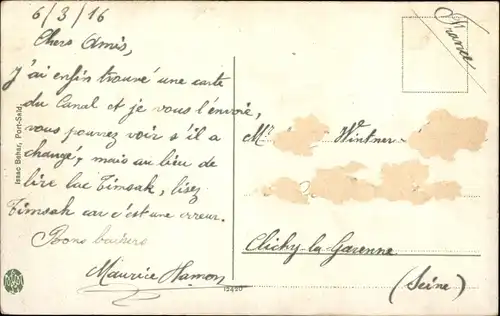 6/3/16
Chers Amis,
J'ai enfin trouvé une carte
du Canal et je vous l'envoie,
vous pourrez voir s'il a
changé, mais au lieu de
lire lac Timsak, lisez
Timsah car c'est une erreur.
Bons baisers
Maurice Hamon
Isaac Behar, Port-Saïd.
12420
France
Mr Wintner
Clichy la Garenne
(Seine)